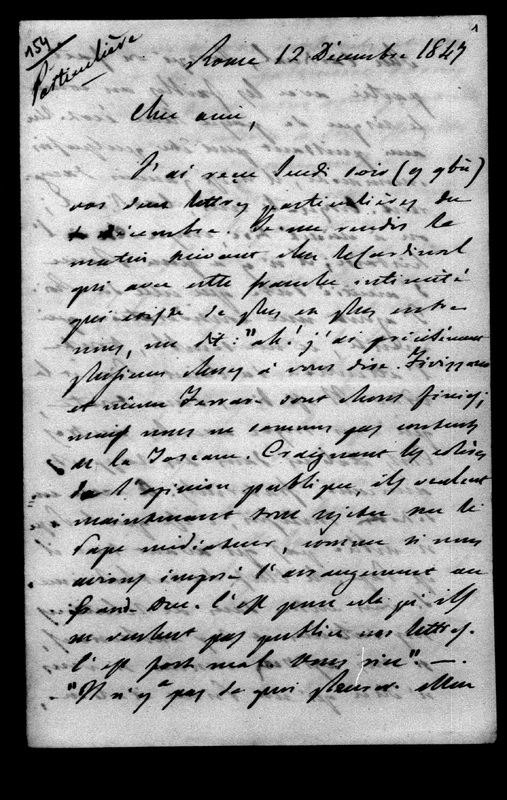 154
Particulière
1
Rome 12 Décembre 1847
Cher ami,
J'ai reçu lundi soir (9 Xbre)
vos deux lettres particulières du
décembre. Je me rendis le
matin suivant chez le Cardinal
qui avec cette franche intimité
qui existe de plus en plus entre
nous, me dit: "ah! j'ai précisément
plusieurs choses à vous dire. Fivizzano
et même Ferrare sont choses finies;
mais nous ne sommes pas contents
de la Toscane. Craignant les colères
de l'opinion publique, ils veulent
maintenant tout rejeter sur le
Pape médiateur, comme si nous
avions imposé l'arrangement au
Grand-Duc. C'est pour cela qu'ils
ne veulent pas publier nos lettres.
C'est fort mal. Vous riez". —
"Il n'y a pas de quoi pleurer. Mon